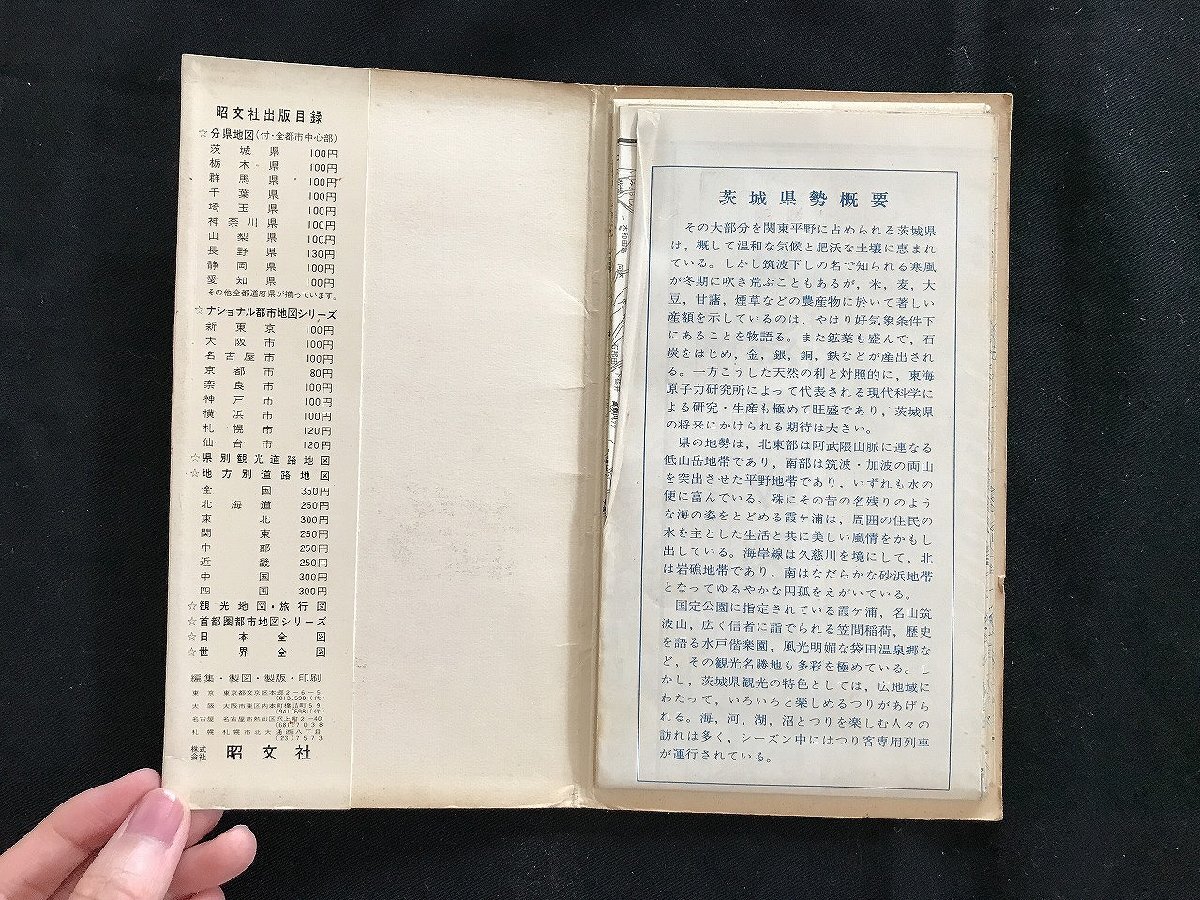 昭文社出版目録
☆分県地図(付・全都市中心部)
茨城県 100円
栃木県 100円
群馬県 100円
千葉県 100円
埼玉県 100円
神奈川県 100円
山梨県 100円
長野県 130円
静岡県 100円
愛知県 100円
その他全都道府県が揃っています。
☆ナショナル都市地図シリーズ
新東京 100円
大阪市 100円
名古屋市 100円
京都市 80円
奈良市 100円
神戸市 100円
横浜市 100円
札幌市 120円
仙台市 120円
☆県別観光道路地図
☆地方別道路地図
全国 350円
北海道 250円
東北 300円
関東 250円
中部 250円
近畿 250円
中国 300円
四国 300円
☆観光地図・旅行図
☆首都圏都市地図シリーズ
☆日本全図
☆世界全図
編集・製図・製版・印刷
東京 東京都文京区本郷2-6-5
大阪 大阪市東区内本町橋詰町59
名古屋
札幌 札幌市北大通西八丁目
(23)7573
株式会社 昭文社
茨城県勢概要
その大部分を関東平野に占められる茨城県
は，概して温和な気候と肥沃な土壌に恵まれ
ている。しかし筑波下しの名で知られる寒風
が冬期に吹き荒ぶこともあるが，米，麦，大
豆，甘藷，煙草などの農産物に於いて著しい
産額を示しているのは，やはり好気象条件下
にあることを物語る。また鉱業も盛んで，石
炭をはじめ，金，銀，銅，鉄などが産出され
る。一方こうした天然の利と対照的に，東海
原子力研究所によって代表される現代科学に
よる研究・生産も極めて旺盛であり，茨城県
の将来にかけられる期待は大さい。
県の地勢は，北東部は阿武隈山脈に連なる
低山岳地帯であり，南部は筑波・加波の両山
を突出させた平野地帯であり，いずれも水の
便に富んでいる。殊にその昔の名残りのよう
な海の姿をとどめる霞ヶ浦は，周囲の住民の
水を主とした生活と共に美しい風情をかもし
出している。海岸線は久慈川を境にして，北
は岩礁地帯であり，南はなだらかな砂浜地帯
となってゆるやかな円弧をえがいている。
国定公園に指定されている霞ヶ浦，名山筑
波山，広く信者に詣でられる笠間稲荷，歴史
を語る水戸偕楽園，風光明媚な袋田温泉郷な
ど，その観光名勝地も多彩を極めている。し
かし，茨城県観光の特色としては，広地域に
わたって，いろいろと楽しめるつりがあげら
れる。海，河，湖，沼とつりを楽しむ人々の
訪れは多く，シーズン中にはつり客専用列車
が運行されている。